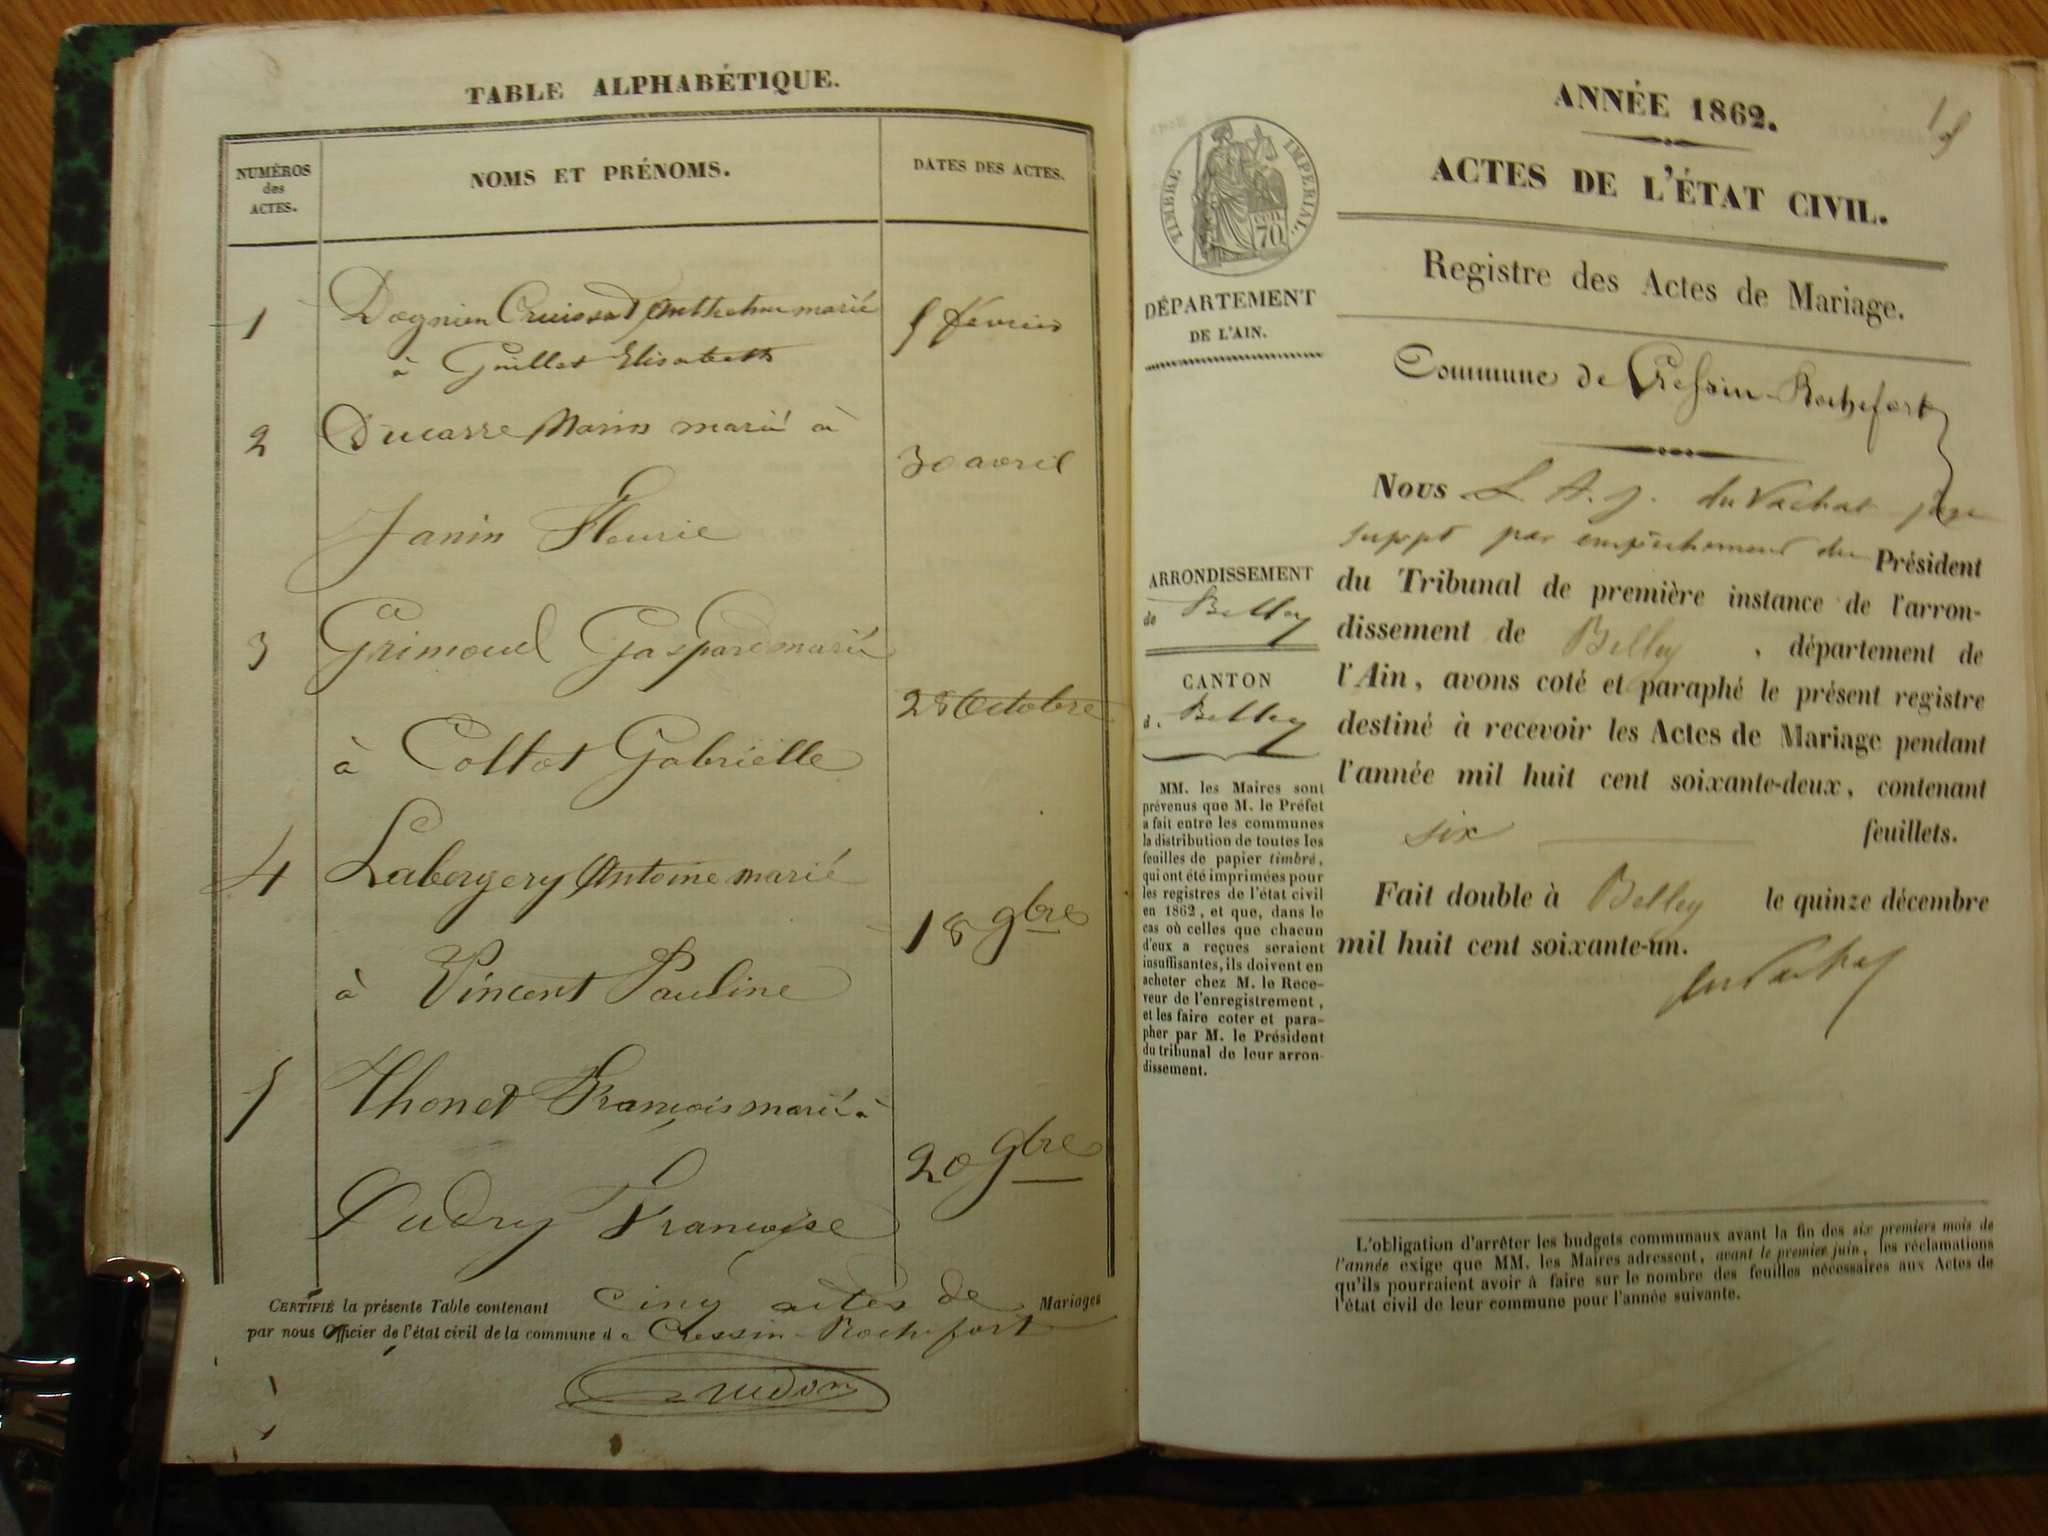 TABLE ALPHABÉTIQUE.
NUMÉROS
des
ACTES.
NOMS ET PRÉNOMS.
DATES DES ACTES.
1
Dognien Cruissat Anthelme marié
à Guillot Elisabeth
5 février
2
Ducarre Marin marié à
Janin Fleurie
30 avril
3
Grimoud Gaspard marié
à Coltot Gabrielle
28 Octobre
4
Labergery Antoine marié
à Vincent Pauline
18 9bre
5
Thonet François marié à
Oudry Francoise
20 9bre
CERTIFIÉ la présente Table contenant cinq actes de Mariages
par nous Officier de l'état civil de la commune de Cressin-Rochefort
ANNÉE 1862.
ACTES DE L'ÉTAT CIVIL.
TIMBRE IMPÉRIAL.
cen
70
Registre des Actes de Mariage.
DÉPARTEMENT
DE L'AIN.
Commune de Cressin-Rochefort
Nous L. A. J. du Vachat juge
suppt par empêchement du Président
du Tribunal de première instance de l'arron-
dissement de Belley, département de
l'Ain, avons coté et paraphé le présent registre
destiné à recevoir les Actes de Mariage pendant
l'année mil huit cent soixante-deux, contenant
six feuillets.
Fait double à Belley le quinze décembre
mil huit cent soixante-un.
du Vachat
ARRONDISSEMENT
de Belley
CANTON
d. Belley
MM. les Maires sont
prévenus que M. le Préfet
a fait entre les communes
la distribution de toutes les
feuilles de papier timbré,
qui ont été imprimées pour
les registres de l'état civil
en 1862, et que, dans le
cas où celles que chacun
d'eux a reçues seraient
insuffisantes, ils doivent en
acheter chez M. le Rece-
veur de l'enregistrement,
et les faire coter et para-
pher par M. le Président
du tribunal de leur arron-
dissement.
L'obligation d'arrêter les budgets communaux avant la fin des six premiers mois de
l'année exige que MM. les Maires adressent, avant le premier juin, les réclamations
qu'ils pourraient avoir à faire sur le nombre des feuilles nécessaires aux Actes de
l'état civil de leur commune pour l'année suivante.